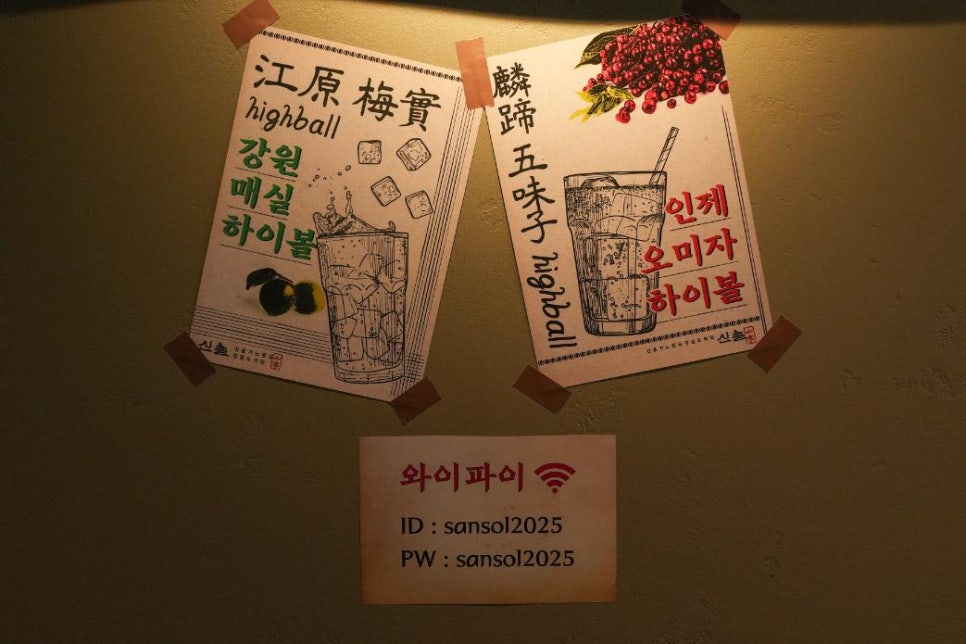 江原 梅實
highball
강원
매실
하이볼
麟蹄 五味子 highball
인제
오미자
하이볼
와이파이
ID : sansol2025
PW : sansol2025